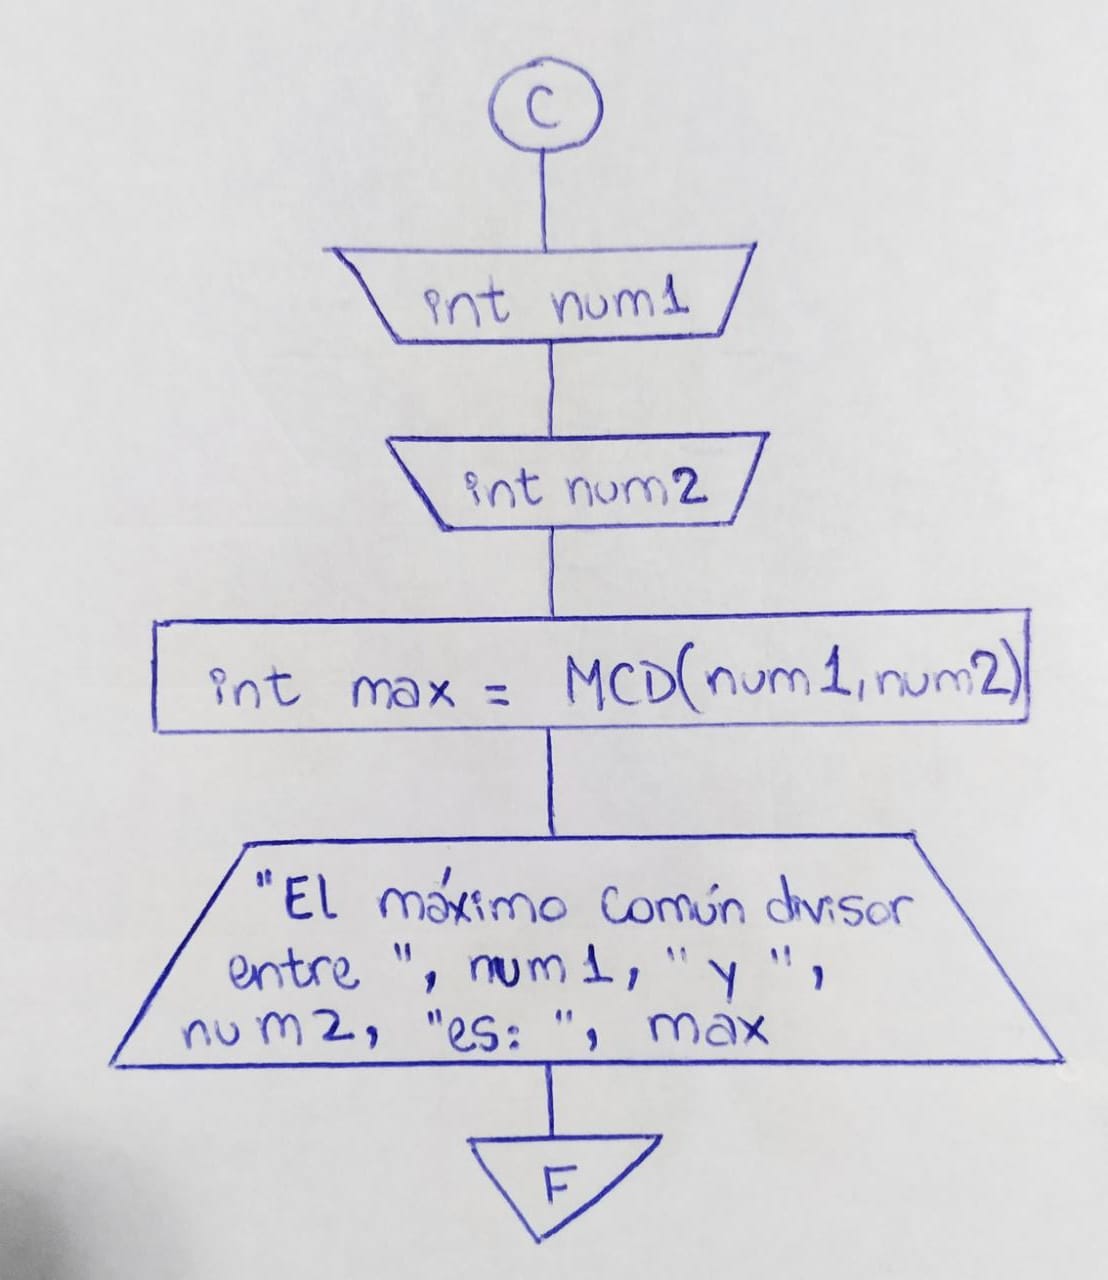 C
int num1
int num2
int max = MCD(num1, num2)
"El máximo común divisor
entre ", num1, " y ",
num2, "es: ", max
F